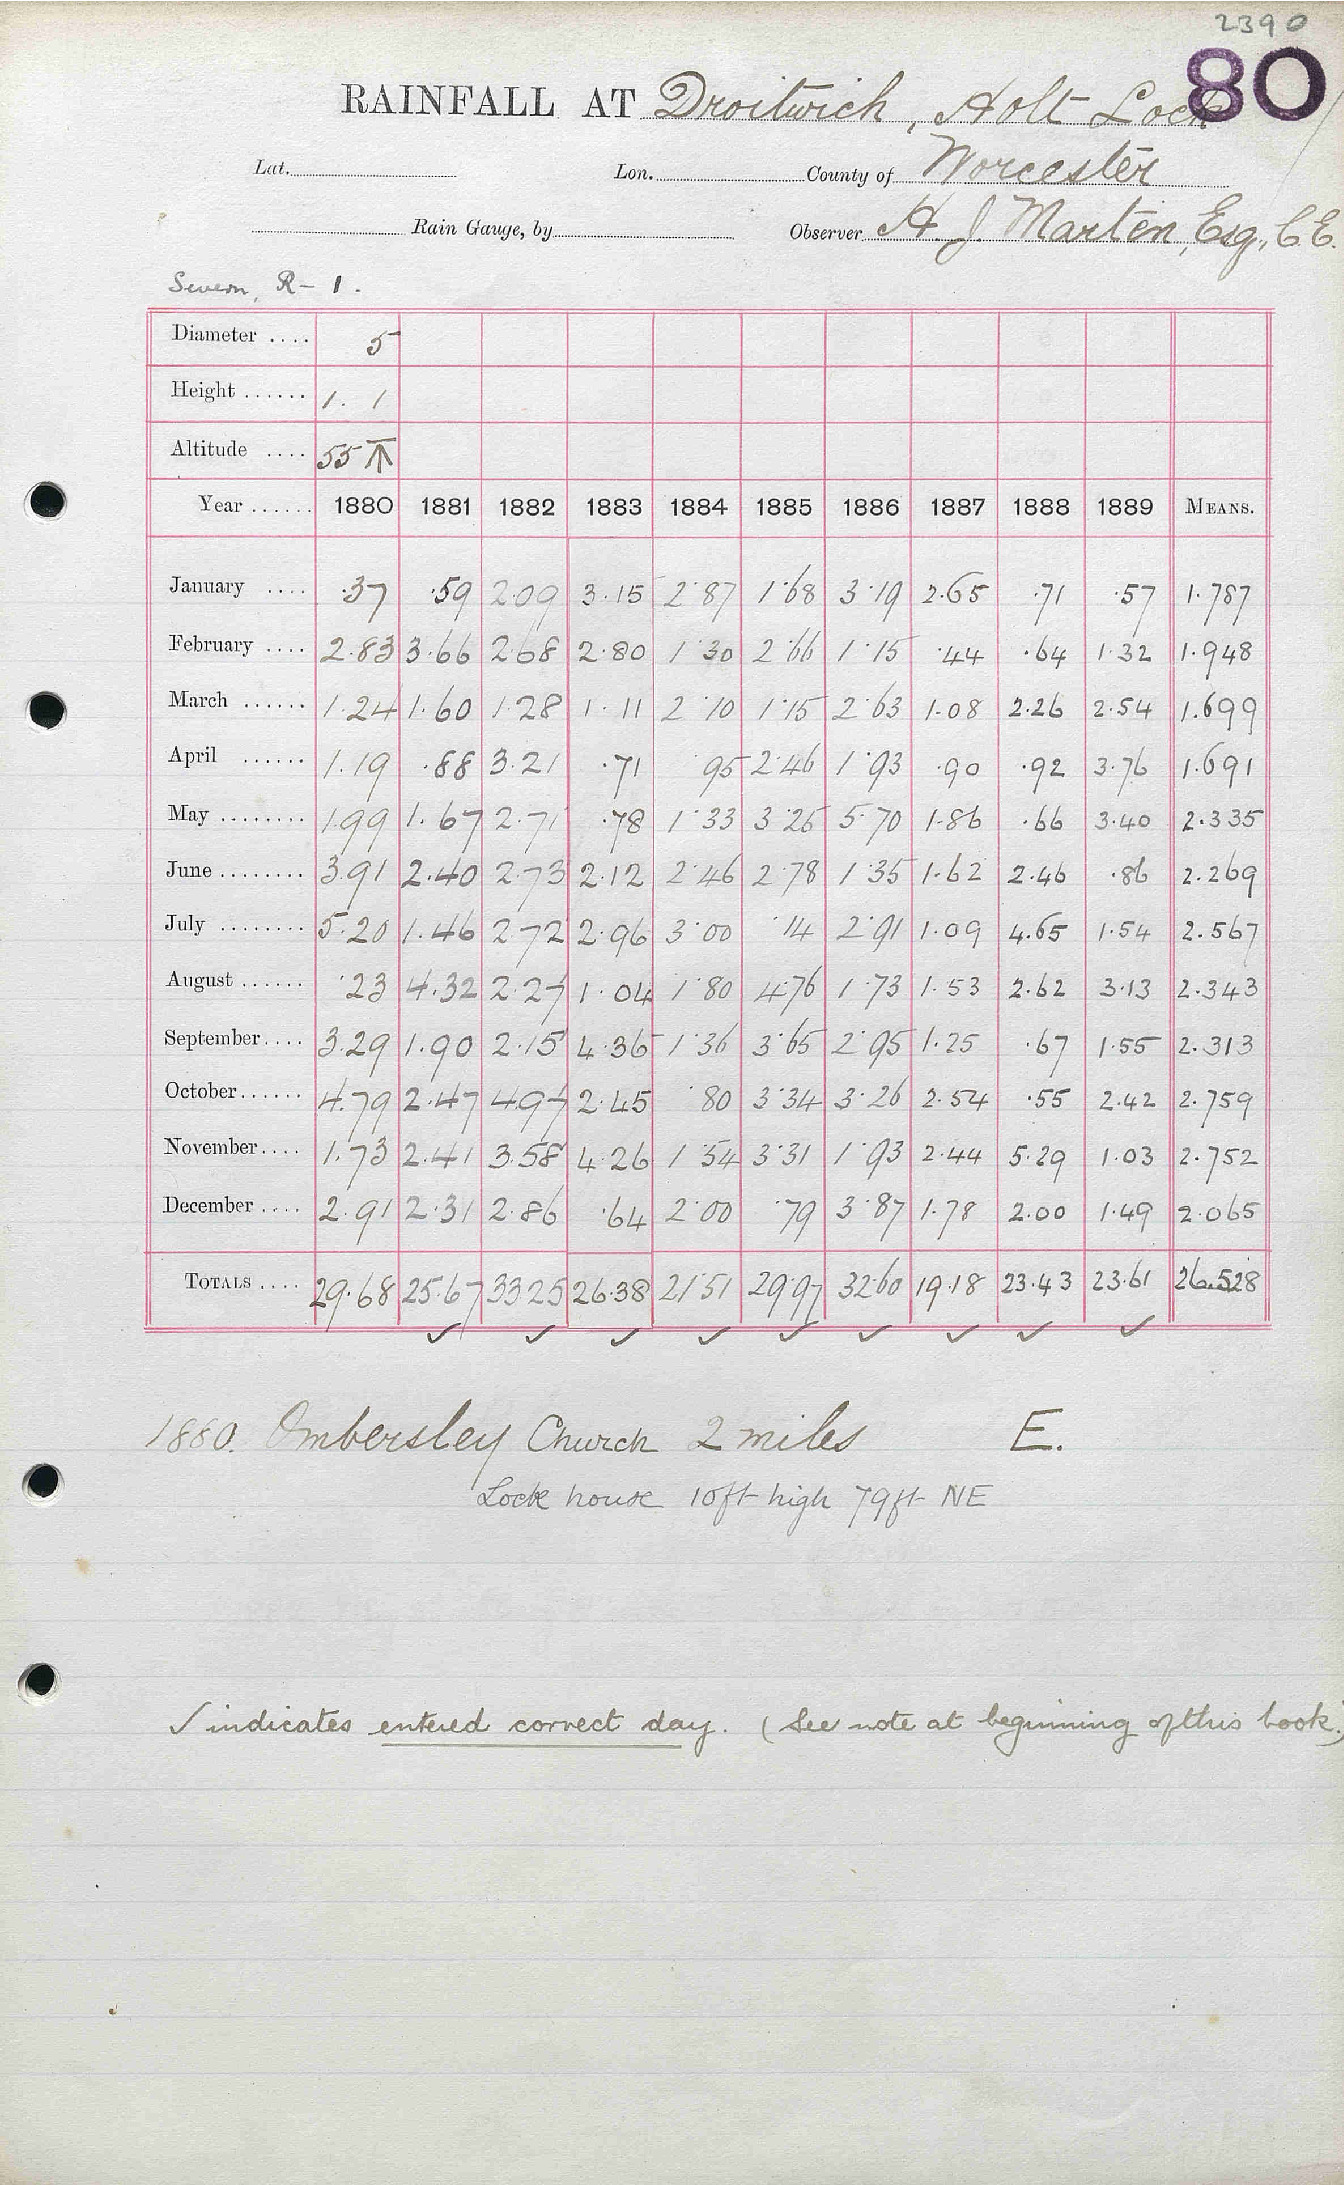 2390
80
RAINFALL AT Droitwich, Holt Lock
Lat. Lon. County of Worcester
Rain Gauge, by Observer H. J. Marten, Esq., C.E.
Severn, R - 1.
Diameter .... 5
Height ...... 1. 1
Altitude .... 55
Year ...... 1880 1881 1882 1883 1884 1885 1886 1887 1888 1889 MEANS.
January .... .37 .59 2.09 3.15 2.87 1.68 3.19 2.65 .71 .57 1.787
February .... 2.83 3.66 2.68 2.80 1.30 2.66 1.15 .44 .64 1.32 1.948
March ...... 1.24 1.60 1.28 1.11 2.10 1.15 2.63 1.08 2.26 2.54 1.699
April ...... 1.19 .88 3.21 .71 95 2.46 1.93 .90 .92 3.76 1.691
May ........ 1.99 1.67 2.71 .78 1.33 3.25 5.70 1.86 .66 3.40 2.335
June ........ 3.91 2.40 2.73 2.12 2.46 2.78 1.35 1.62 2.46 .86 2.269
July ........ 5.20 1.46 2.72 2.96 3.00 .14 2.91 1.09 4.65 1.54 2.567
August ...... .23 4.32 2.27 1.04 1.80 4.76 1.73 1.53 2.62 3.13 2.343
September .... 3.29 1.90 2.15 4.36 1.36 3.65 2.95 1.25 .67 1.55 2.313
October ...... 4.79 2.47 4.97 2.45 .80 3.34 3.26 2.54 .55 2.42 2.759
November .... 1.73 2.41 3.58 4.26 1.54 3.31 1.93 2.44 5.29 1.03 2.752
December .... 2.91 2.31 2.86 .64 2.00 .79 3.87 1.78 2.00 1.49 2.065
TOTALS .... 29.68 25.67 33.25 26.38 21.51 29.97 32.60 19.18 23.43 23.61 26.528
✓ ✓ ✓ ✓ ✓ ✓ ✓ ✓ ✓
1880. Ombersley Church 2 miles E.
Lock house 10ft high 79ft NE
✓ indicates entered correct day. (See note at beginning of this book.)